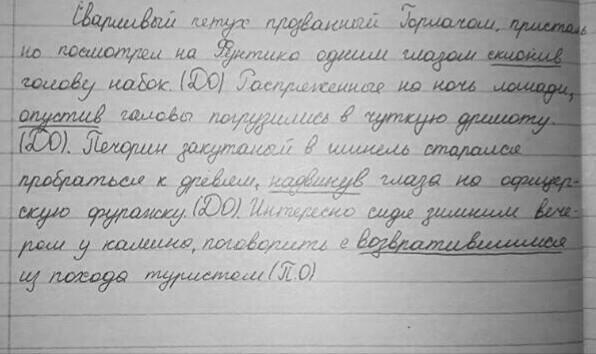 Сварливый петух прозванный Горлачом, присталь
но посмотрел на Фунтика одним глазом склонив
голову набок. (ДО) Распряженные на ночь лошади,
опустив головы погрузились в чуткую дремоту.
(ДО). Печорин закутаный в шинель старался
пробраться к древлем, надвинув глаза на офицер-
скую фуражку. (ДО). Интересно сидя зимним вече-
ром у камина, поговорить с возвратившимися
из похода туристом (П.О)